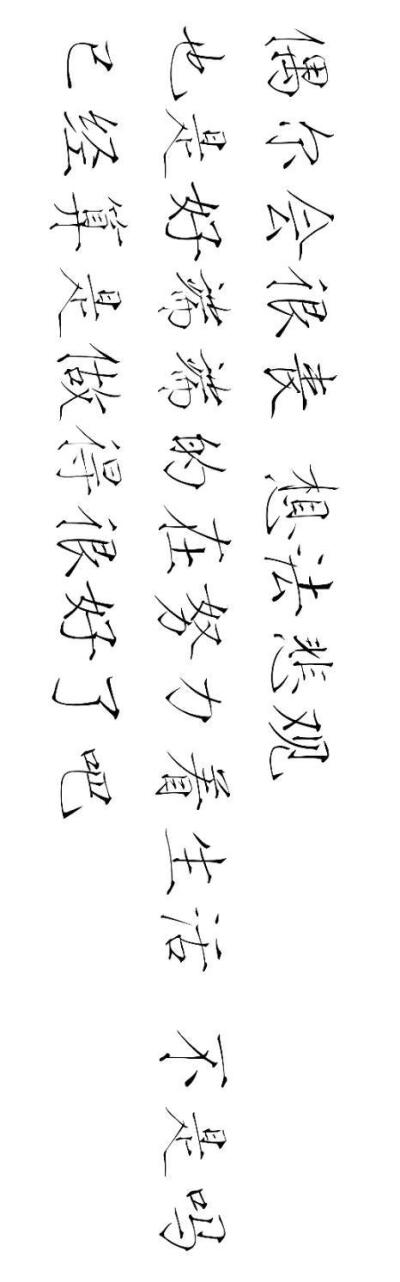 偶尔会很丧 想法悲观
也是好端端的在努力着生活 不是吗
已经算是做得很好了吧